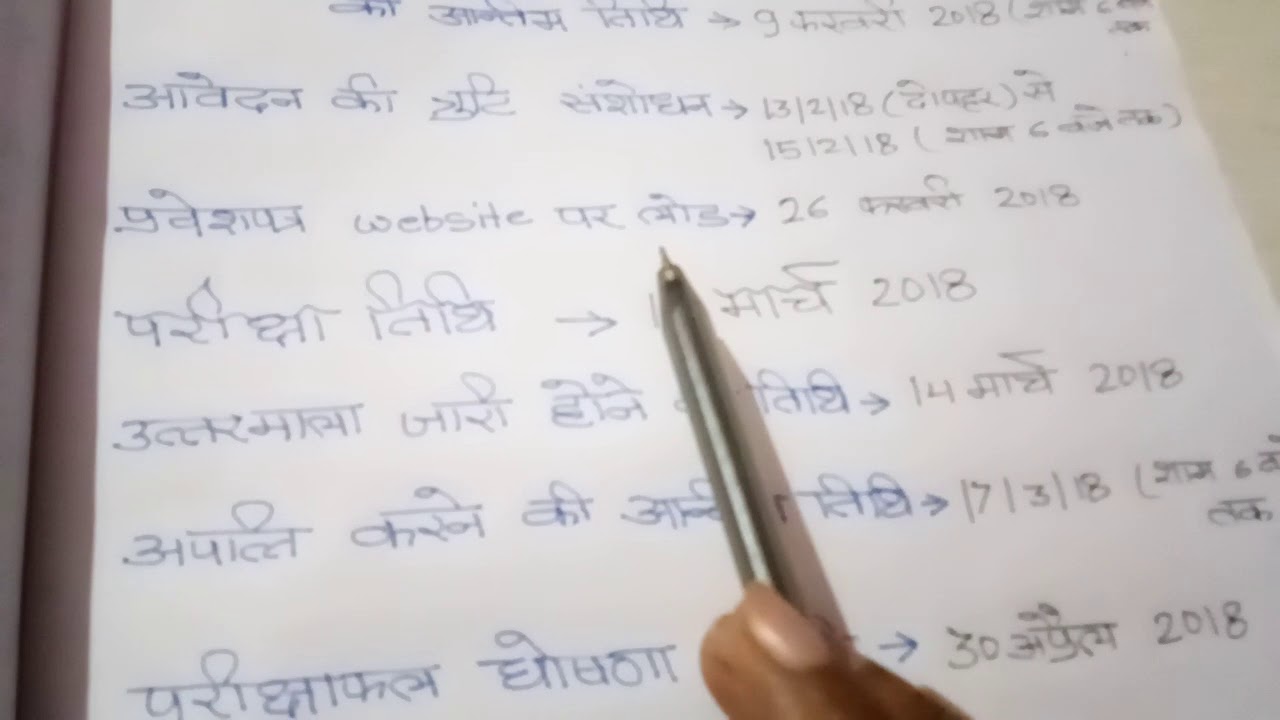 की अन्तिम तिथि → 9 फरवरी 2018 (शाम 6
तक
आवेदन की त्रुटि संशोधन → 13/2/18 (दोपहर) से
15/2/18 ( शाम 6 बजे तक)
प्रवेशपत्र website पर लोड → 26 फरवरी 2018
परीक्षा तिथि → मार्च 2018
उत्तरमाला जारी होने तिथि → 14 मार्च 2018
अपत्ति करने की तिथि → 17/3/18 (शाम 6
तक
परीक्षाफल घोषणा → 30 अप्रैल 2018